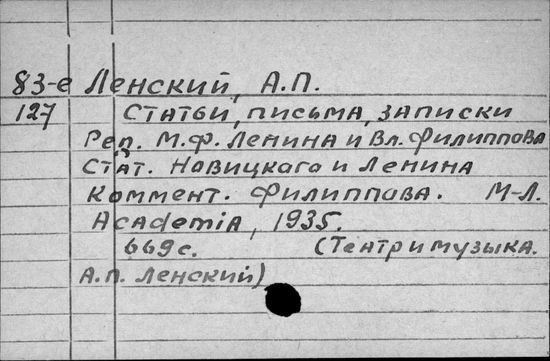 83-е Ленский, А.П.
127 Статьи, письма, записки
Ред. М.Ф. Ленина и Вл. Филиппова
Стат. Новицкого и Ленина
Коммент. Филиппова. М-Л.
Academia, 1935.
669с. (Театр и музыка.
А.П. Ленский)